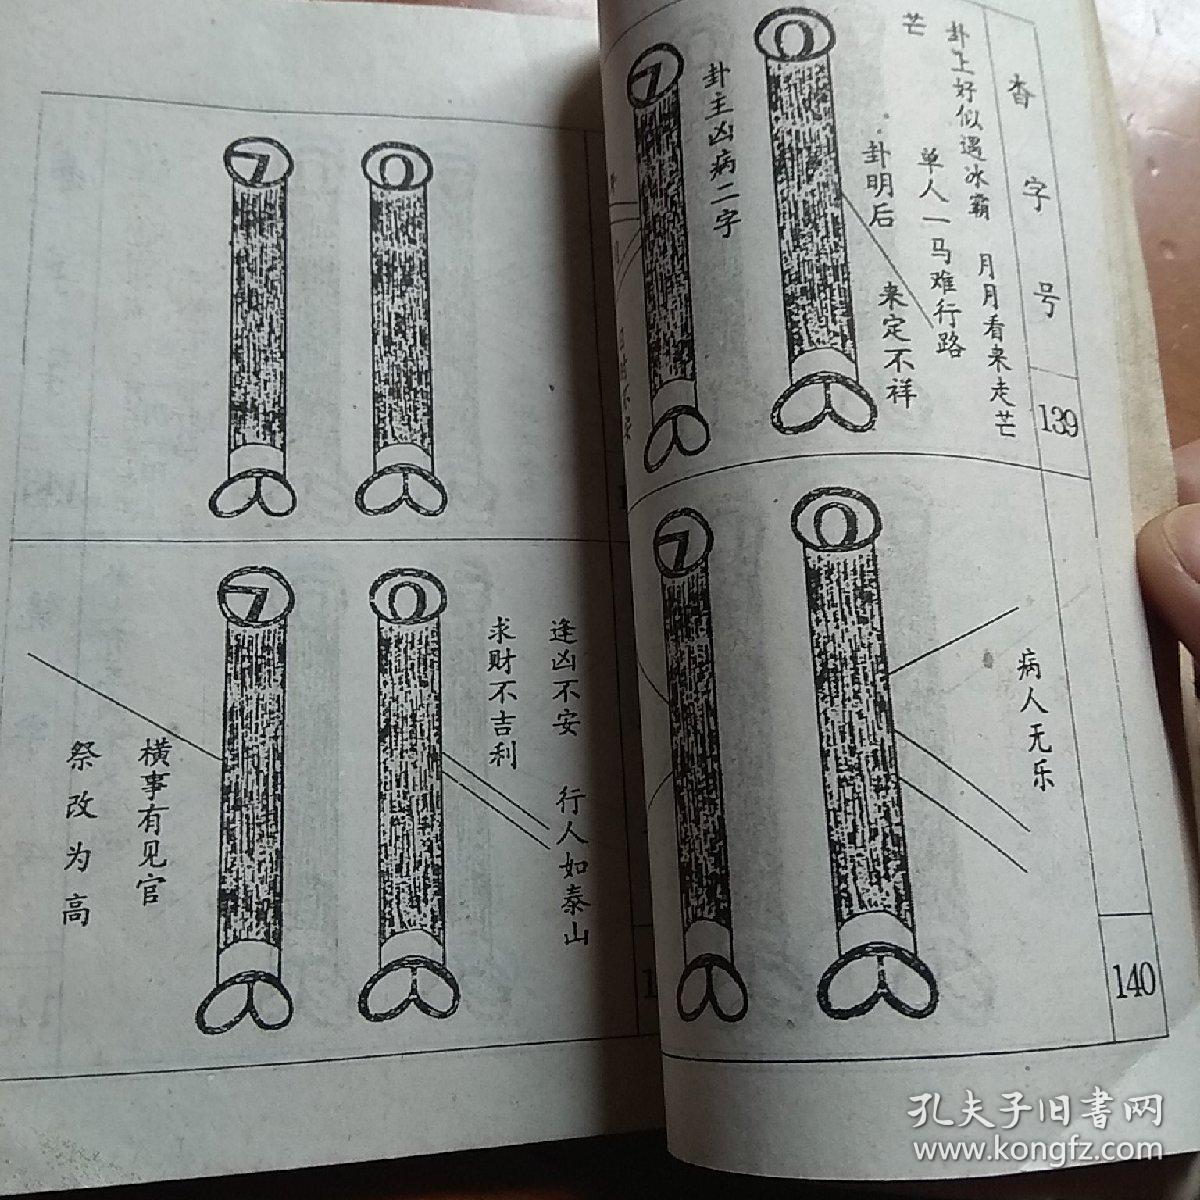 杳字号
139
卦上好似遇冰霜 月月看来走芒
芒
单人一马难行路
卦明后 来定不祥
卦主凶病二字
140
病人无乐
逢凶不安 行人如泰山
求财不吉利
横事有见官
祭改为高
孔夫子旧书网
www.kongfz.com